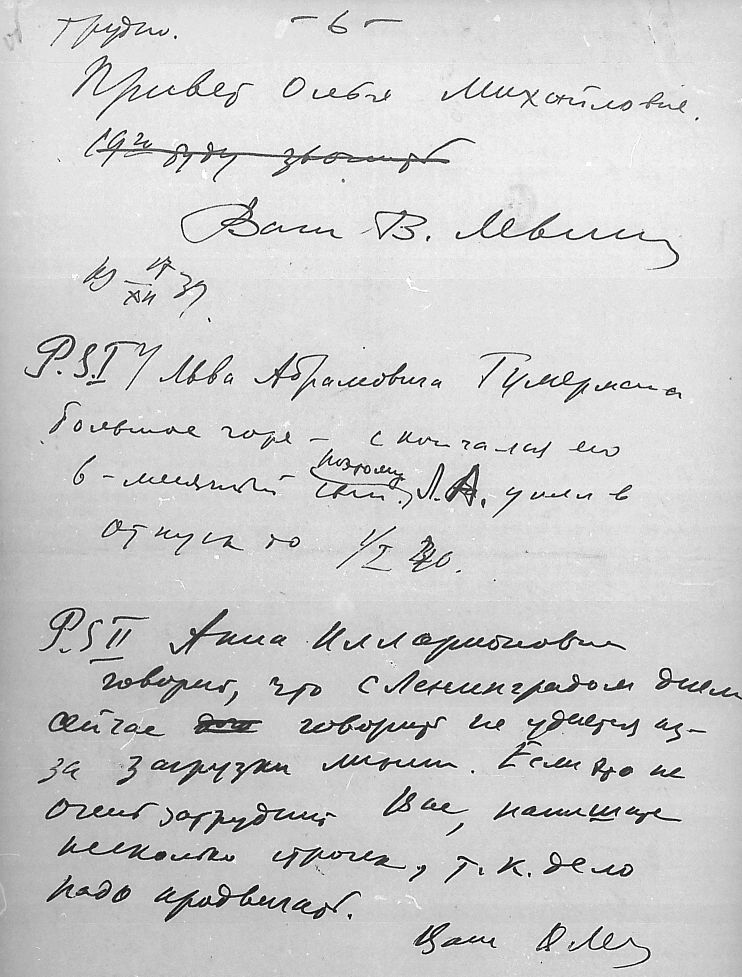 трудно. – 6 –
Привет Ольге Михайловне.
19го буду звонить
Ваш В. Левшин
17/XII 39.
P.S.I У Льва Абрамовича Тумермана
большое горе – скончался его
6-месячный сын, поэтому Л.А. ушел в
отпуск до 1/I 40.
P.S II Анна Илларионовна
говорит, что с Ленинградом днем
сейчас говорить не удается из-
за загрузки линии. Если это не
очень затруднит Вас, напишите
несколько строк, т.к. дело
надо продвигать.
Ваш